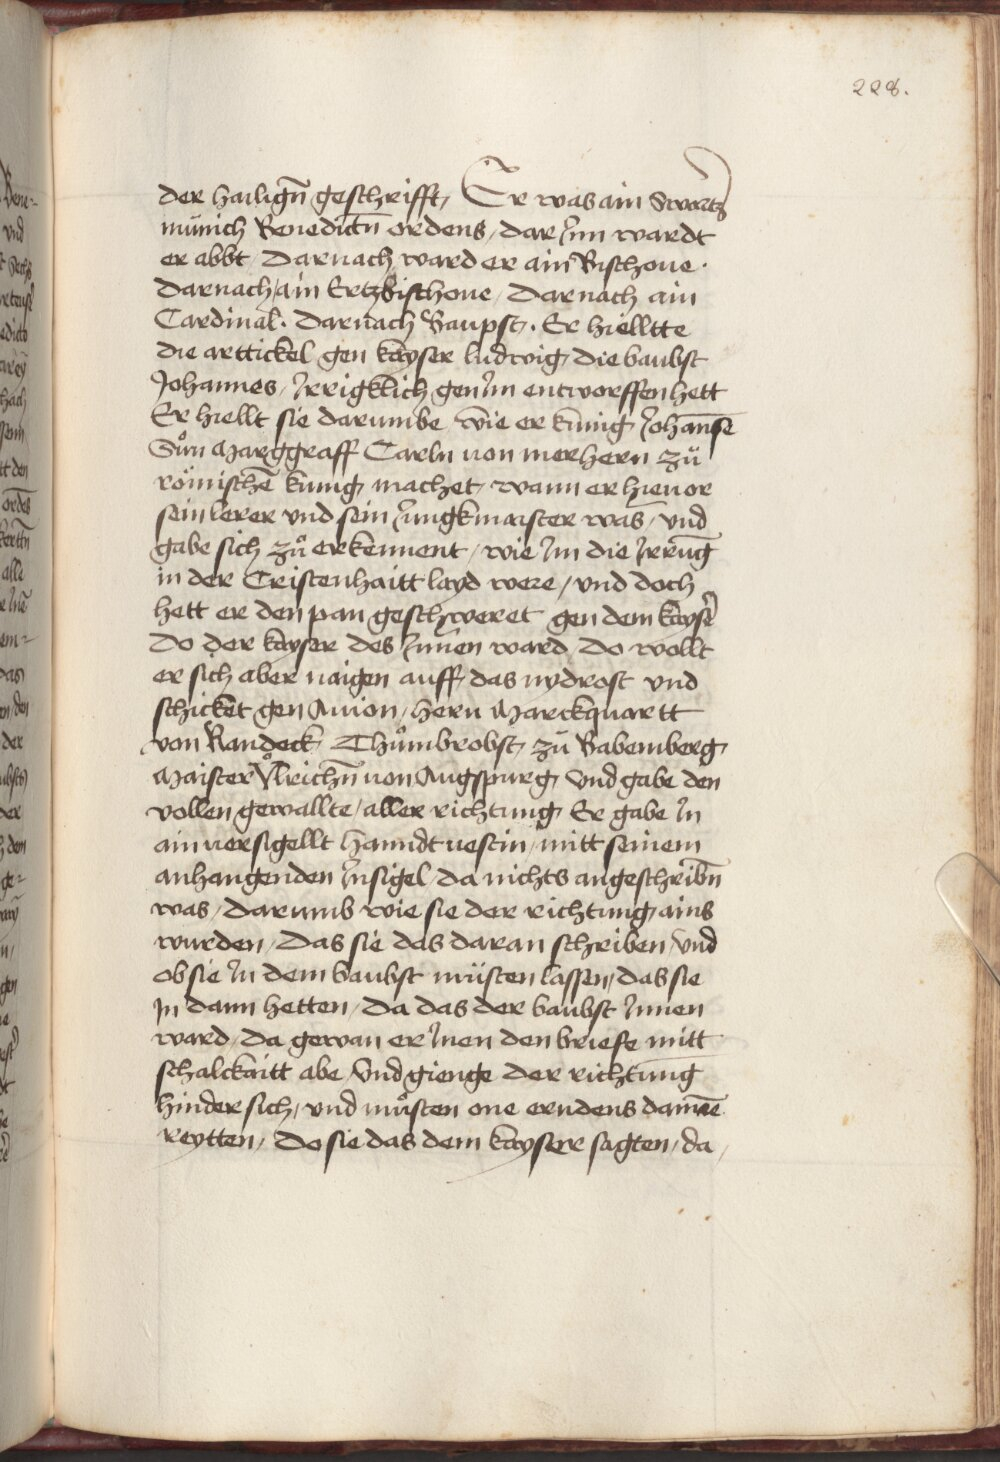 228.
der hailign̄ geschrifft, Er was ain Swartz
münich Benedictn̄ ordens, dar Inn wardt
er abbt, Darnach ward er ain Bischoue.
Darnach ain Ertzbischoue, Darnach ain
Cardinal. Darnach Baupst. Er hielltte
die arttickel gen kayser ludwig, die baubst
Johannes, Irrigklich gen Im entworffen hett
Er hiellt sie darumbe wie er kunig Johanse
Sůn Marggraff Carln von merhern zů
römischē kunig, machet, wann er hieuor
sein lerer vnd sein Jungkmaister was, vnd
gabe sich zů erkennent, wie Im die Irrūg
in der Cristenhaitt layd were, vnd doch
hett er den pan geschweret gen dem kayser
Do der kayser des Innen ward, do wollt
er sich aber naigen auff das nydrost vnd
schicket gen Auion, hern Marckquartt
von Randeck, Thůmbrobst, zů Babemberg,
Maister Vlrichn̄ von Augspurg, Vnd gabe den
vollen gewallte, aller richtung, Er gabe In
ain versigellt hanndtuestin, mitt seinem
anhangenden Insigel, da nichts angeschribn̄
was, Darumb wie sie der richtung, ains
wurden, Das sie das daran schriben, vnd
ob sie In dem baubst müsten lassen, das sie
In dann hetten, Da das der baubst Innen
ward, da gewan er Inen den briefe mitt
schalckaitt abe, Vnd gienge der richtung
hindersich, vnd můsten one erndens damīe
reytten, Do sie das dem kayser sagten, da,